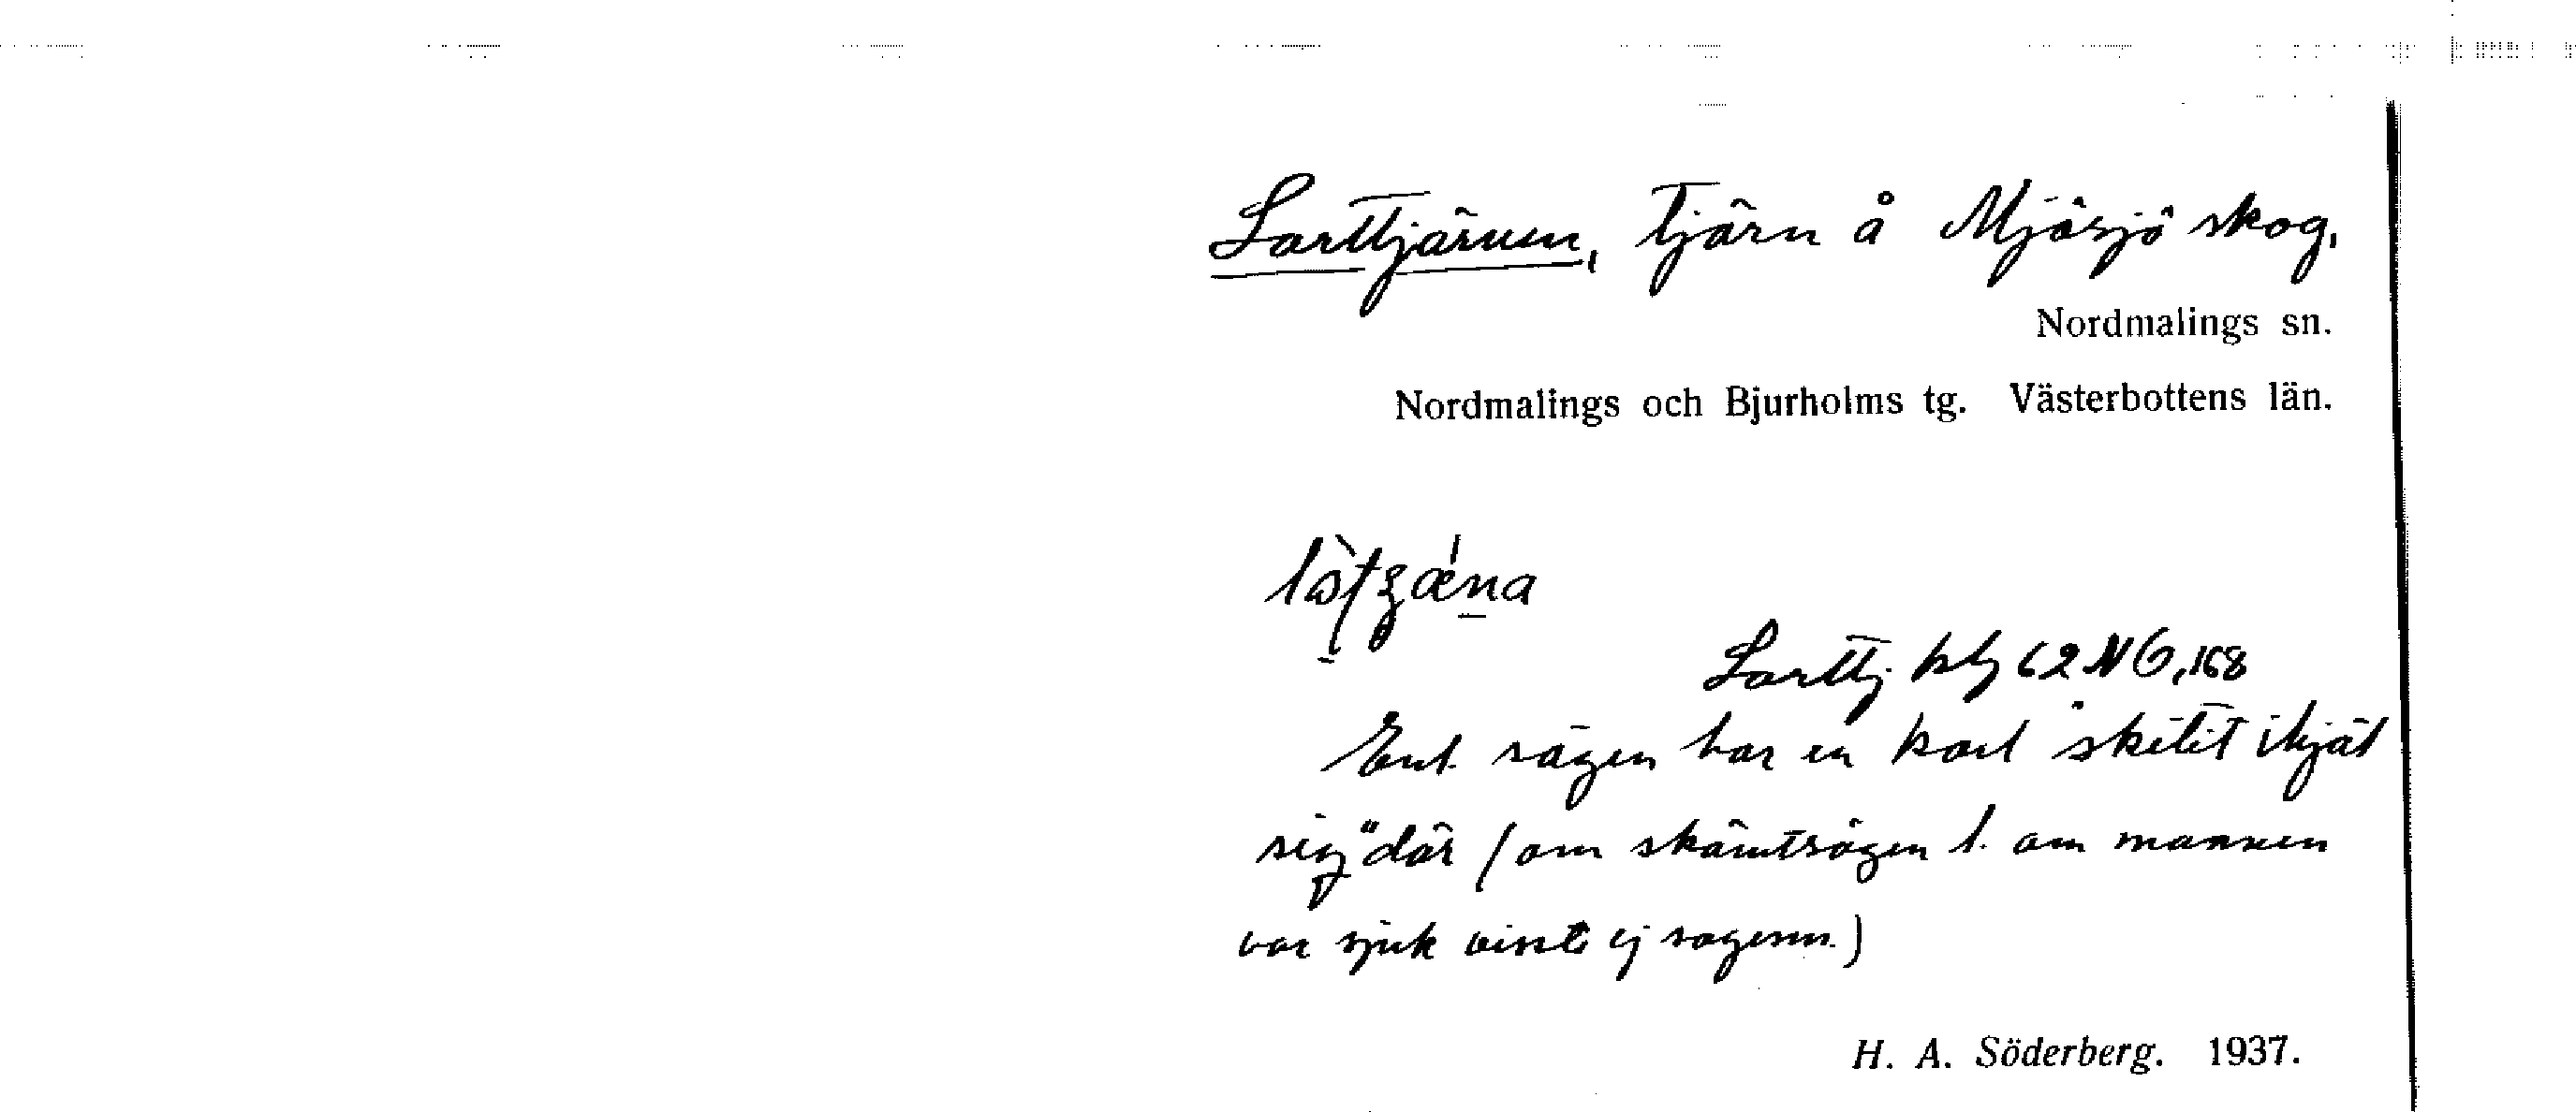 Lorttjärnen, tjärn å Mjösjö skog.
Nordmalings sn.
Nordmalings och Bjurholms tg. Västerbottens län.
Lorttj. blz 62 NO, 168
Enl. sägen har en karl "skitit ihjäl
sig" där (om skämtsägen l. om mannen
var sjuk visste ej sagesm.)
H. A. Söderberg. 1937.